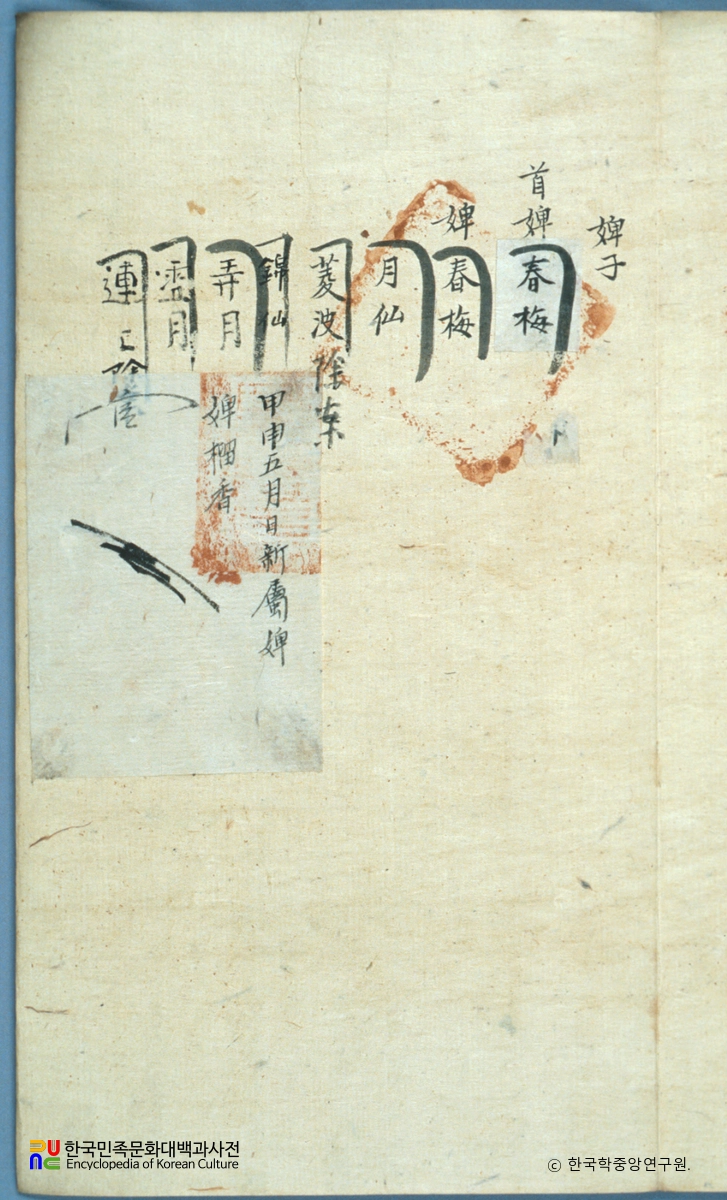 婢子
首婢 春梅
婢 春梅
月仙
菱波 除案
錦仙
弄月
雲月
連
甲申五月日新屬婢
婢榴香
한국민족문화대백과사전
Encyclopedia of Korean Culture
ⓒ 한국학중앙연구원.